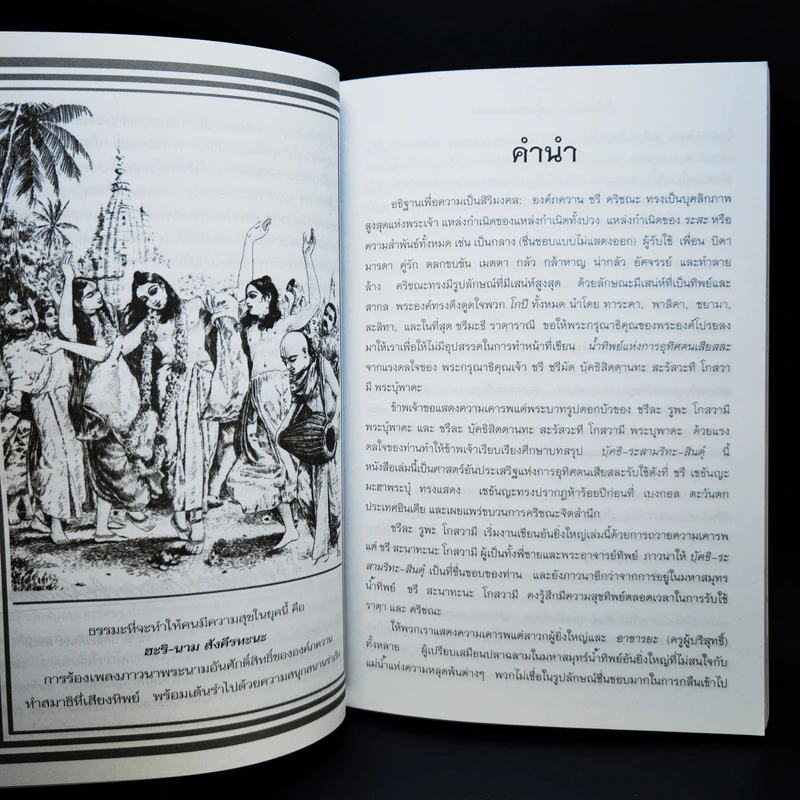 ธรรมะที่จะทำให้คนมีความสุขในยุคนี้ คือ
ฮะริ-นาม สังคีรทะนะ
การร้องเพลงภาวนาพระนามอันศักดิ์สิทธิ์ขององค์ภควาน
ทำสมาธิที่เสียงทิพย์ พร้อมเต้นรำไปด้วยความสนุกสนานร่าเริง
คำนำ
อธิฐานเพื่อความเป็นสิริมงคล: องค์ภควาน ชรี คริชณะ ทรงเป็นบุคลิกภาพ
สูงสุดแห่งพระเจ้า แหล่งกำเนิดของแหล่งกำเนิดทั้งปวง แหล่งกำเนิดของ ระสะ หรือ
ความสัมพันธ์ทั้งหมด เช่น เป็นกลาง (ชื่นชอบแบบไม่แสดงออก) ผู้รับใช้ เพื่อน บิดา
มารดา คู่รัก ตลกขบขัน เมตตา กลัว กล้าหาญ น่ากลัว อัศจรรย์ และทำลาย
ล้าง คริชณะทรงมีรูปลักษณ์ที่มีเสน่ห์สูงสุด ด้วยลักษณะมีเสน่ห์ที่เป็นทิพย์และ
สากล พระองค์ทรงดึงดูดใจพวก โกปี ทั้งหมด นำโดย ทาระคา, พาลิคา, ชยามา,
ละลิทา, และในที่สุด ชรีมะธี ราดารานี ขอให้พระกรุณาธิคุณของพระองค์โปรยลง
มาให้เราเพื่อให้ไม่มีอุปสรรคในการทำหน้าที่เขียน น้ำทิพย์แห่งการอุทิศตนเสียสละ
จากแรงดลใจของ พระกรุณาธิคุณเจ้า ชรี ชรีมัด บัคธิสิดดานทะ สะรัสวะที โกสวา
มี พระบุ้พาดะ
ข้าพเจ้าขอแสดงความเคารพแด่พระบาทรูปดอกบัวของ ชรีละ รูพะ โกสวามี
พระบุ้พาดะ และ ชรีละ บัคธิสิดดานทะ สะรัสวะที โกสวามี พระบุพาดะ ด้วยแรง
ดลใจของท่านทำให้ข้าพเจ้าเรียบเรียงศึกษาบทสรุป บุัคธิ-ระสามริทะ-สินดุ้ นี้
หนังสือเล่มนี้เป็นศาสตร์อันประเสริฐแห่งการอุทิศตนเสียสละรับใช้ดังที่ ชรี เชธันญะ
มะฮาพระบุ้ ทรงแสดง เชธันญะทรงปรากฏห้าร้อยปีก่อนที่ เบงกอล ตะวันตก
ประเทศอินเดีย และเผยแพร่ขบวนการคริชณะจิตสำนึก
ชรีละ รูพะ โกสวามี เริ่มงานเขียนอันยิ่งใหญ่เล่มนี้ด้วยการถวายความเคารพ
แด่ ชรี สะนาทะนะ โกสวามี ผู้เป็นทั้งพี่ชายและพระอาจารย์ทิพย์ ภาวนาให้ บัคธิ-ระ-
สามริทะ-สินดุ้ เป็นที่ชื่นชอบของท่าน และยังภาวนาอีกว่าจากการอยู่ในมหาสมุทร
น้ำทิพย์ ชรี สะนาทะนะ โกสวามี คงรู้สึกมีความสุขทิพย์ตลอดเวลาในการรับใช้
ราดา และ คริชณะ
ให้พวกเราแสดงความเคารพแด่สาวกผู้ยิ่งใหญ่และ อาชารยะ (ครูผู้บริสุทธิ์)
ทั้งหลาย ผู้เปรียบเสมือนปลาฉลามในมหาสมุทรน้ำทิพย์อันยิ่งใหญ่ที่ไม่สนใจกับ
แม่น้ำแห่งความหลุดพ้นต่างๆ พวกไม่เชื่อในรูปลักษณ์ชื่นชอบมากในการกลืนเข้าไป